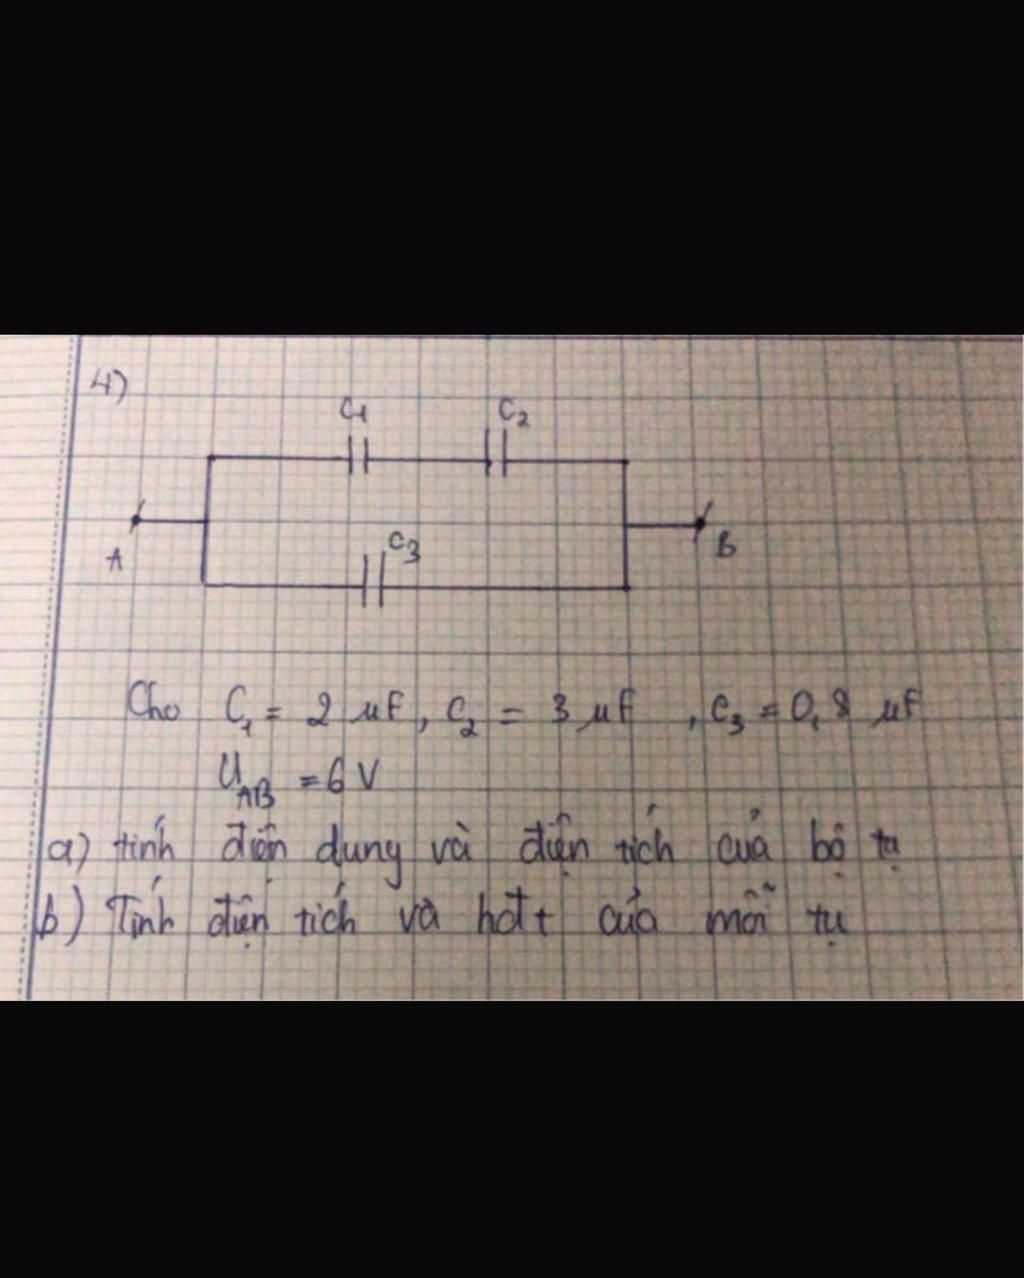 4)
C1 C2
A C3 B
Cho C1 = 2 μF, C2 = 3 μF , C3 = 0,8 μF
UAB = 6 V
a) tính điện dung và điện tích của bộ tụ
b) Tính điện tích và hđt của mỗi tụ